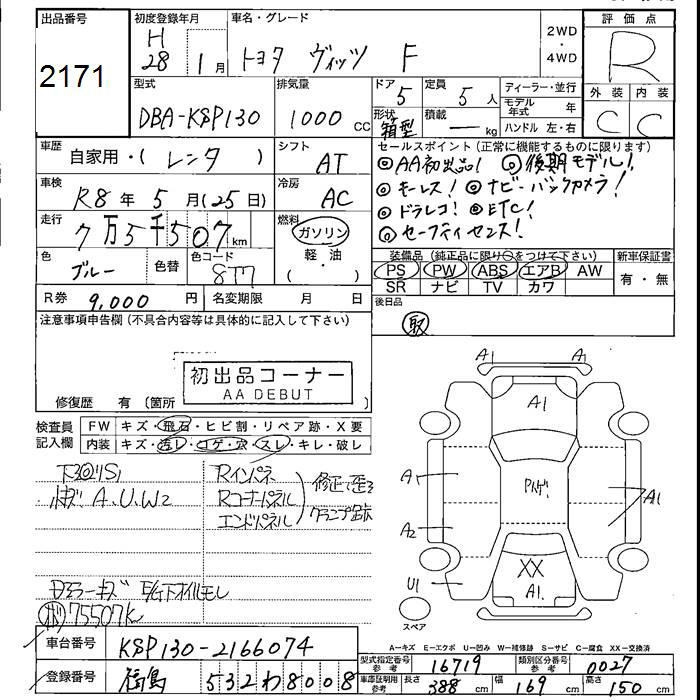 出品番号
2171
初度登録年月
H
28年 1月
車名・グレード
トヨタ ヴィッツ F
2WD
・
4WD
評価点
R
外装 内装
C C
型式
DBA-KSP130
排気量
1000 CC
ドア
5
定員
5 人
形状
箱型
積載
— kg
ディーラー・並行
モデル年式 年
ハンドル 左・右
車歴
自家用・( レンタ )
シフト
AT
車検
R8年 5月(25日)
冷房
AC
走行
7万5千507km
燃料
ガソリン
軽・油
( )
色
ブルー
色替
色コード
8T7
R券 9,000 円
名変期限 月 日
セールスポイント (正常に機能するものに限ります)
◎AA初出品! ◎後期モデル!
◎キーレス! ◎ナビ・バックカメラ!
◎ドラレコ! ◎ETC!
◎セーフティセンス!
装備品 (純正品に限り○をつけて下さい)
PS PW ABS エアB AW
SR ナビ TV カワ
新車保証書
有・無
後日品
取
注意事項申告欄 (不具合内容等は具体的に記入して下さい)
初出品コーナー
AA DEBUT
修復歴 有 (箇所
検査員記入欄
FW キズ・飛石・ヒビ割・リペア跡・X要
内装 キズ・汚レ・コゲ・穴・スレ・キレ・破レ
A.U.W2
Rインパネ
Rコーナーパネル
エンドパネル
修正て歪ミ
クランプ跡
75507K
A1 A1
A1
A1
A2
U1
A1
XX
A1.
スペア
A-キズ E-エクボ U-凹み W-補修跡 S-サビ C-腐食 XX-交換済
車台番号
KSP130-2166074
登録番号
福島 532 わ 8008
型式指定番号 参考
16719
類別区分番号 参考
0027
車庫証明用 参考
長さ 388 cm 幅 169 cm 高さ 150 cm